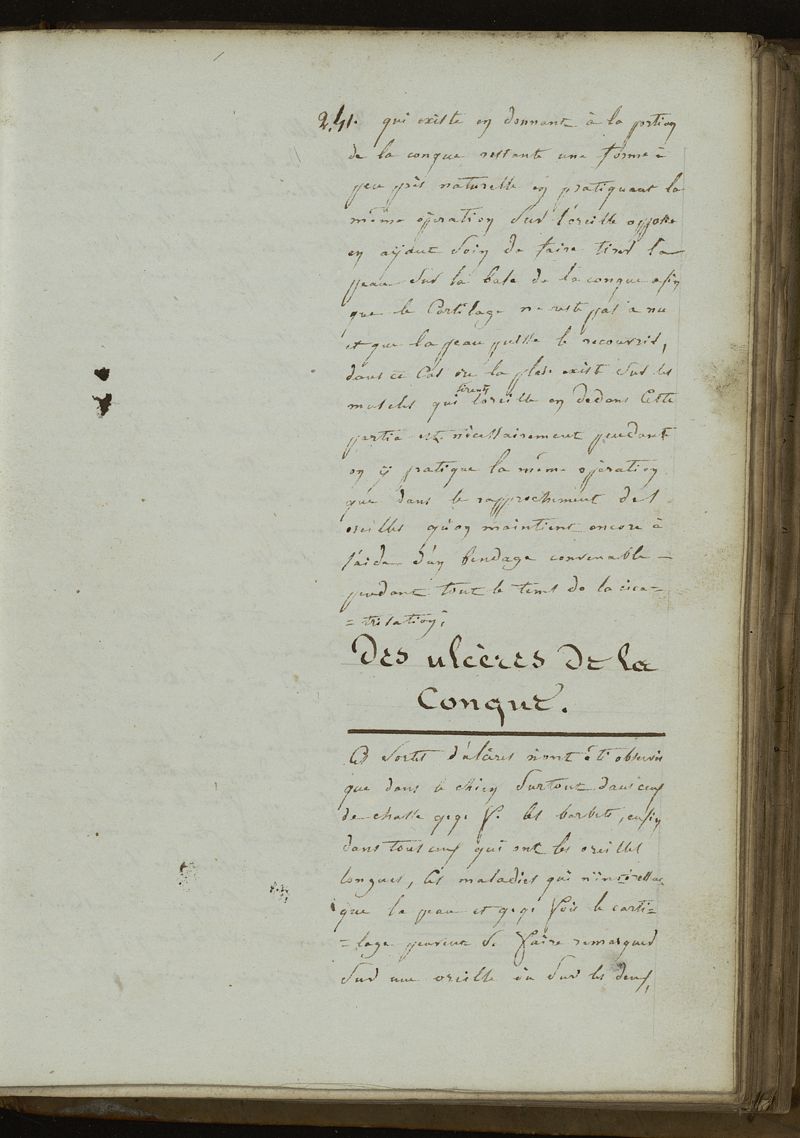 241. qui existe en donnant à la portion
de la conque restante une forme à
peu près naturelle en pratiquant la
même opération sur l'oreille opposée
en aijant soin de faire tirer la
peau sur la base de la conque afin
que le Cartilage ne reste pas a nu
et que la peau puisse le recouvrir,
dans ce Cas ou la plaie exist sur les
muscles qui tirent l'oreille en dedans Cette
partie est nécessairement pendante
on ij pratique la même opération
que dans le rapprochement des
oreilles qu'on maintient encore à
l'aide d'un bandage convenable –
pendant tout le tems de la cica=
=trisation,
Des ulcères de la
Conque.
Ces sortes d'ulcères n'ont été observés
que dans le chien surtout dans ceux
de chasse qcqe f. les barbets, enfin
dans tous ceux qui ont les oreilles
longues, Ces maladies qui n'intéresse
que la peau et qcqe fois le carti=
=lage peuvent se faire remarquer
sur une oreille ou sur les deux,